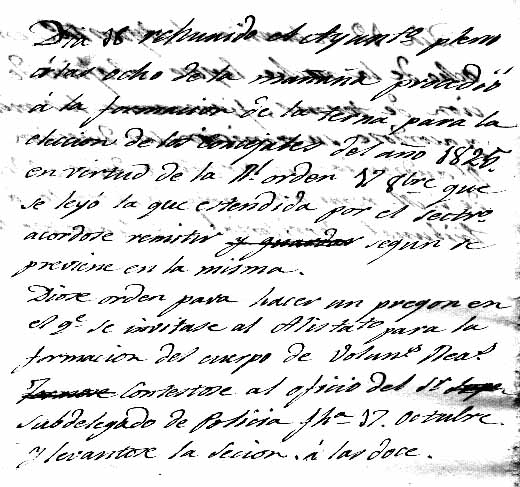 Dia 18 rehunido el Ayunto. pleno
á las ocho de la mañana procedió
á la formacion de la terna para la
eleccion de los concejales del año 1825.
en virtud de la Rl. orden 17 8bre que
se leyó la que estendida por el Secro.
acordose remitir y guardar segun se
previene en la misma.
Diose orden para hacer un pregon en
el qe. se invitase al Alistato para la
formacion del cuerpo de Volunos. Reas.
Contestose al oficio del Sr.
Subdelegado de Policia fha 17. Octubre.
y levantose la Secion. á las doce.